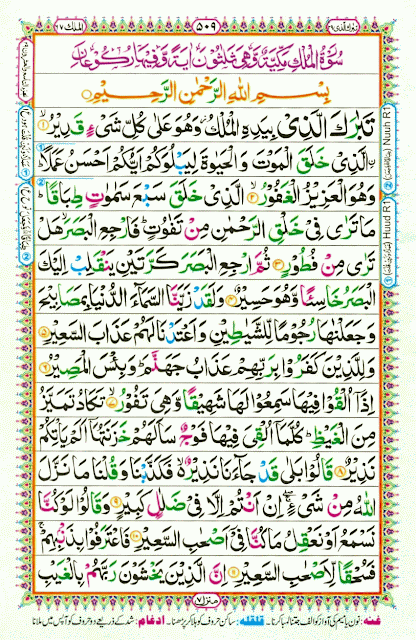 تبارک الذی ۲۹
۵۰۹
الملک ۶۷
سُوْرَةُ الْمُلْكِ مَكِّيَّةٌ وَّهِيَ ثَلٰثُوْنَ اٰيَةً وَّفِيْهَا رُكُوْعَانِ
بِسْمِ اللهِ الرَّحْمٰنِ الرَّحِيْمِ
تَبٰرَكَ الَّذِيْ بِيَدِهِ الْمُلْكُ وَهُوَ عَلٰى كُلِّ شَيْءٍ قَدِيْرُۨ ۙ﴿۱﴾
الَّذِيْ خَلَقَ الْمَوْتَ وَالْحَيٰوةَ لِيَبْلُوَكُمْ اَيُّكُمْ اَحْسَنُ عَمَلًا ؕ
وَهُوَ الْعَزِيْزُ الْغَفُوْرُ ۙ﴿۲﴾ الَّذِيْ خَلَقَ سَبْعَ سَمٰوٰتٍ طِبَاقًا ؕ
مَا تَرٰى فِيْ خَلْقِ الرَّحْمٰنِ مِنْ تَفٰوُتٍ ؕ فَارْجِعِ الْبَصَرَ ۙ هَلْ
تَرٰى مِنْ فُطُوْرٍ ﴿۳﴾ ثُمَّ ارْجِعِ الْبَصَرَ كَرَّتَيْنِ يَنْقَلِبْ اِلَيْكَ
الْبَصَرُ خَاسِئًا وَّهُوَ حَسِيْرٌ ﴿۴﴾ وَلَقَدْ زَيَّنَّا السَّمَآءَ الدُّنْيَا بِمَصَابِيْحَ
وَجَعَلْنٰهَا رُجُوْمًا لِّلشَّيٰطِيْنِ وَاَعْتَدْنَا لَهُمْ عَذَابَ السَّعِيْرِ ﴿۵﴾
وَلِلَّذِيْنَ كَفَرُوْا بِرَبِّهِمْ عَذَابُ جَهَنَّمَ ؕ وَبِئْسَ الْمَصِيْرُ ﴿۶﴾
اِذَاۤ اُلْقُوْا فِيْهَا سَمِعُوْا لَهَا شَهِيْقًا وَّهِيَ تَفُوْرُ ۙ﴿۷﴾ تَكَادُ تَمَيَّزُ
مِنَ الْغَيْظِ ؕ كُلَّمَاۤ اُلْقِيَ فِيْهَا فَوْجٌ سَاَلَهُمْ خَزَنَتُهَاۤ اَلَمْ يَاْتِكُمْ
نَذِيْرٌ ﴿۸﴾ قَالُوْا بَلٰى قَدْ جَآءَنَا نَذِيْرٌ ۙ فَكَذَّبْنَا وَقُلْنَا مَا نَزَّلَ
اللهُ مِنْ شَيْءٍ ۖۚ اِنْ اَنْتُمْ اِلَّا فِيْ ضَلٰلٍ كَبِيْرٍ ﴿۹﴾ وَقَالُوْا لَوْ كُنَّا
نَسْمَعُ اَوْ نَعْقِلُ مَا كُنَّا فِيْۤ اَصْحٰبِ السَّعِيْرِ ﴿۱۰﴾ فَاعْتَرَفُوْا بِذَنْۢبِهِمْ ۚ
فَسُحْقًا لِّاَصْحٰبِ السَّعِيْرِ ﴿۱۱﴾ اِنَّ الَّذِيْنَ يَخْشَوْنَ رَبَّهُمْ بِالْغَيْبِ
منزل ۷
غنہ: نون یا میم کی آواز کو الف جتنا لمبا کرنا۔ قلقلہ: ساکن حروف کو ہلا کر پڑھنا۔ ادغام: شد کے ذریعے دو حروف کو آپس میں ملانا
Nuuh R1
Huud R1